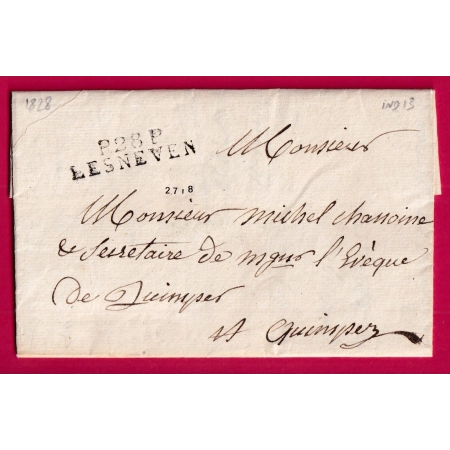 1828
IND 13
P28P
LESNEVEN
Monsieur
27,8
Monsieur michel chanoine
& Secretaire de mgur l'Evèque
de Quimper
A Quimper